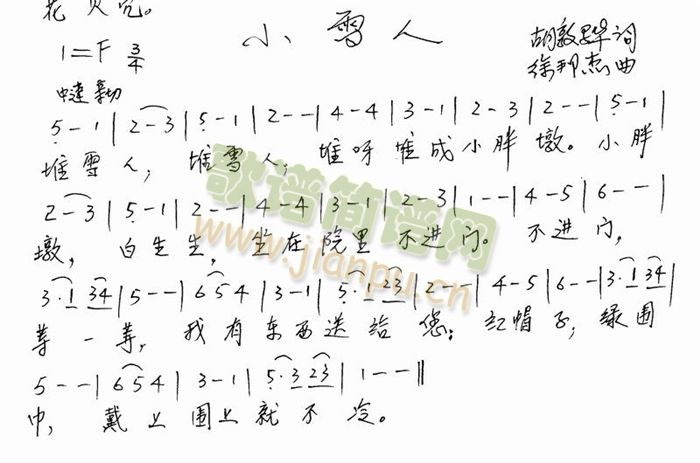 花灭完。
小雪人
1=F 3/4
胡敦骅词
徐邦杰曲
中速
5 - 1 | 2 - 3 | 5 - 1 | 2 - - | 4 - 4 | 3 - 1 | 2 - 3 | 2 - - | 5 - 1 |
堆雪人，堆雪人，堆呀堆成小胖墩。小胖
2 - 3 | 5 - 1 | 2 - - | 4 - 4 | 3 - 1 | 2 - 3 | 1 - - | 4 - 5 | 6 - - |
墩，白生生，坐在院里不进门。不进门，
3 · 1 34 | 5 - - | 6 5 4 | 3 - 1 | 5 · 1 23 | 2 - - | 4 - 5 | 6 - - | 3 · 1 34 |
等一等，我有东西送给您：红帽子，绿围
5 - - | 6 5 4 | 3 - 1 | 5 · 3 23 | 1 - - ‖
巾，戴上围上就不冷。
歌谱简谱网
www.jianpu.cn